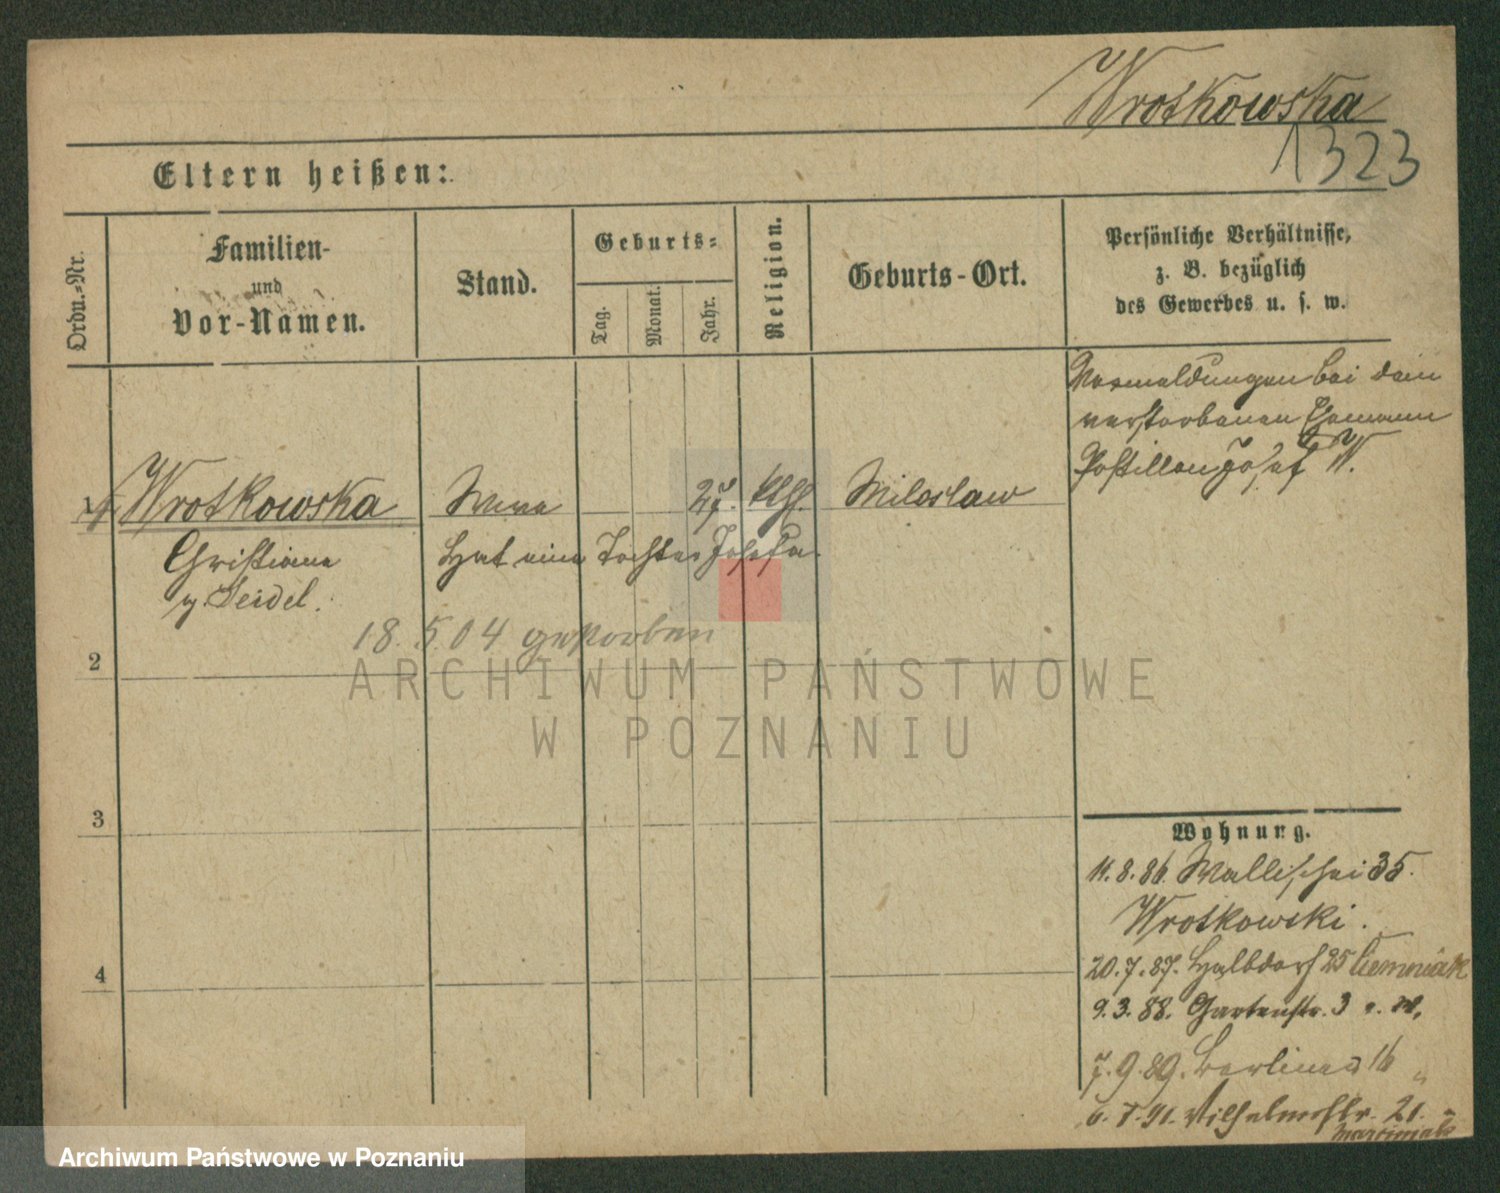 Wrotkowska
1323
Eltern heißen:
Ordn.-Nr.
Familien-
und
Vor-Namen.
Stand.
Geburts-
Tag.
Monat.
Jahr.
Religion.
Geburts-Ort.
Persönliche Verhältnisse,
z. B. bezüglich
des Gewerbes u. s. w.
Vormeldungen bei dem
verstorbenen Ehemann
Postillon Josef W.
1 Wrotkowska Wwe 27. Kth. Miloslaw
Christiane Hat eine Tochter Josefa.
g. Seidel.
18.5.04 gestorben
2
3
4
Wohnung.
11.8.86. Wallischei 35.
Wrotkowski.
20.7.87. Halbdorf 25
9.3.88. Gartenstr. 3
7.9.89. Berliner 16
Wilhelmstr. 21.
ARCHIWUM PAŃSTWOWE
W POZNANIU
Archiwum Państwowe w Poznaniu